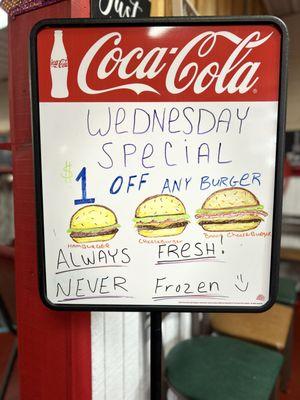 Just
Coca-Cola
WEDNESDAY
SPECIAL
$1 OFF ANY BURGER
HAMBURGER
CHEESEBURGER
Bacon CHEESEBURGER
ALWAYS FRESH!
NEVER Frozen